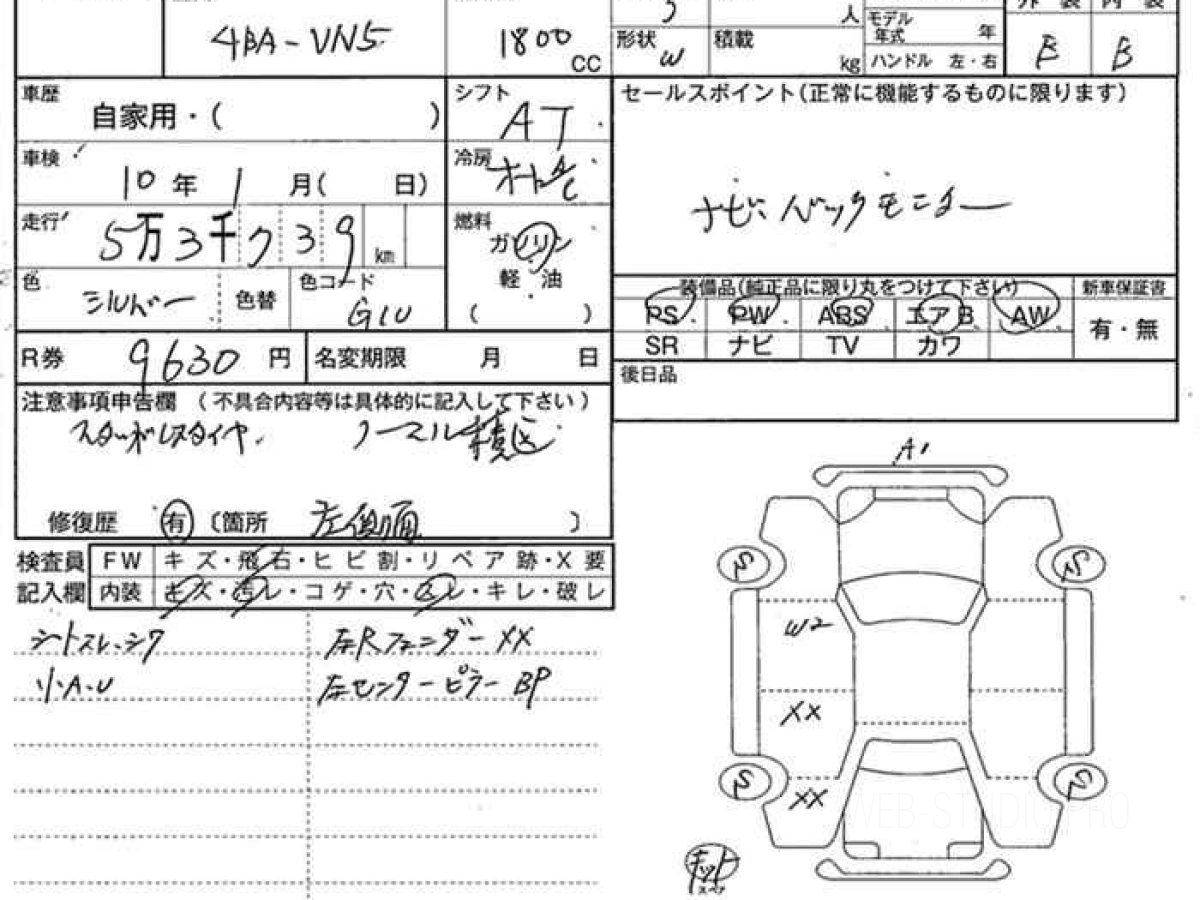 4BA-VN5
1800 CC
5 人
形状 W
積載 kg
モデル年式 年
ハンドル 左・右
外装 内装
B B
車歴 自家用・( )
シフト AT
車検 10年 1月( 日)
冷房 オートA/C
走行 5万3千739km
燃料 ガソリン
軽・油
( )
色 シルバー 色替
色コード G1U
セールスポイント(正常に機能するものに限ります)
ナビ、バックモニター
装備品(純正品に限り丸をつけて下さい)
新車保証書
PS PW ABS エアB AW
有・無
SR ナビ TV カワ
R券 9630円
名変期限 月 日
後日品
注意事項申告欄 (不具合内容等は具体的に記入して下さい)
スタッドレスタイヤ. ノーマル積込
修復歴 有 (箇所 左側面 )
検査員記入欄
FW キズ・飛石・ヒビ割・リペア跡・X要
内装 キズ・汚レ・コゲ・穴・スレ・キレ・破レ
シートスレ、シワ
左Rフェンダー XX
小A・U
左センターピラー BP
A1
W2
XX
XX
キット
スペア
WEB-STUDIO.PRO